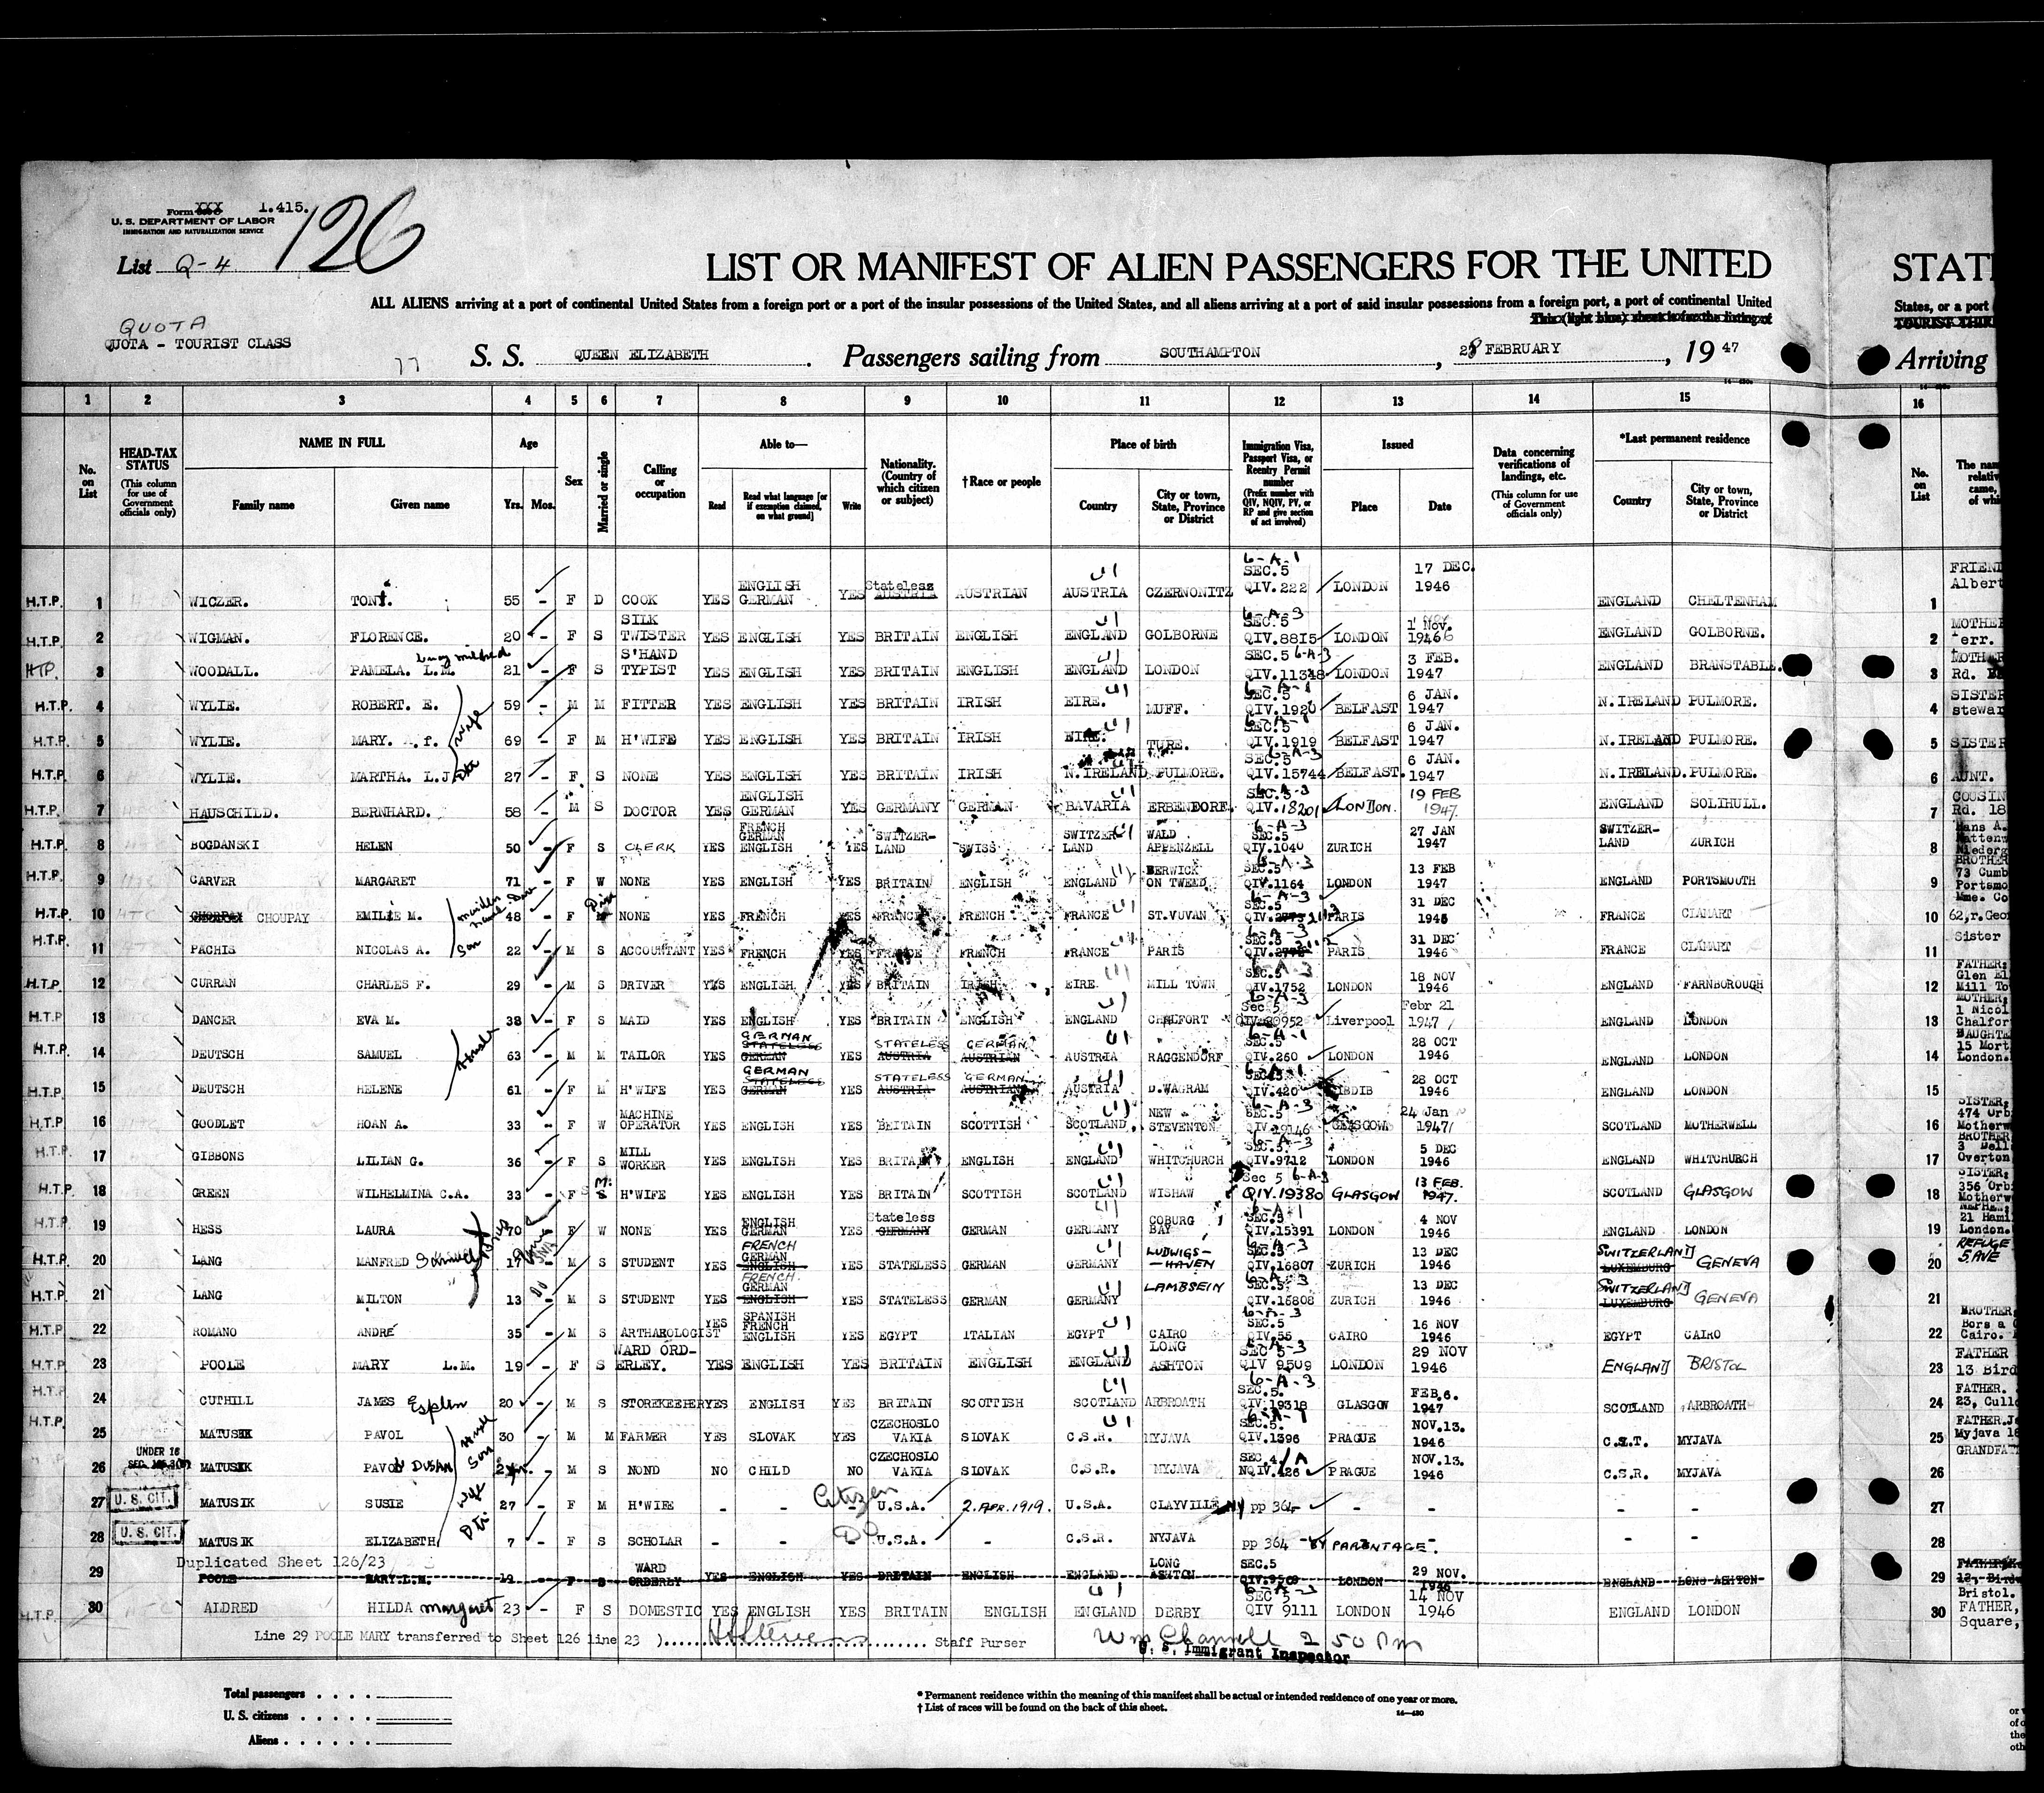 Form XXX 1.415.
U. S. DEPARTMENT OF LABOR
IMMIGRATION AND NATURALIZATION SERVICE
126
List Q-4
LIST OR MANIFEST OF ALIEN PASSENGERS FOR THE UNITED STAT
ALL ALIENS arriving at a port of continental United States from a foreign port or a port of the insular possessions of the United States, and all aliens arriving at a port of said insular possessions from a foreign port, a port of continental United States, or a port
This (light blue) sheet is for the listing of TOURIST THIRD
QUOTA
QUOTA - TOURIST CLASS
77
S. S. QUEEN ELIZABETH. Passengers sailing from SOUTHAMPTON, 28 FEBRUARY, 19 47 Arriving
1 2 3 4 5 6 7 8 9 10 11 12 13 14 15 16
No. on List
HEAD-TAX STATUS (This column for use of Government officials only)
NAME IN FULL Family name Given name
Age Yrs. Mos.
Sex
Married or single
Calling or occupation
Able to— Read Read what language [or if exemption claimed, on what ground] Write
Nationality. (Country of which citizen or subject)
†Race or people
Place of birth Country City or town, State, Province or District
Immigration Visa, Passport Visa, or Reentry Permit number (Prefix number with QIV, NQIV, PV, or RP and give section of act involved)
Issued Place Date
Data concerning verifications of landings, etc. (This column for use of Government officials only)
*Last permanent residence Country City or town, State, Province or District
No. on List
H.T.P. 1 WICZER. TONY. 55 - F D COOK YES ENGLISH GERMAN YES Stateless AUSTRIA AUSTRIAN AUSTRIA CZERNONITZ 6-A-1 SEC.5 QIV.222 LONDON 17 DEC. 1946 ENGLAND CHELTENHAM 1 FRIEND Albert
H.T.P. 2 WIGMAN. FLORENCE. 20 - F S SILK TWISTER YES ENGLISH YES BRITAIN ENGLISH ENGLAND GOLBORNE 6-A-3 SEC.5 QIV.8815 LONDON 1 Nov. 1946 ENGLAND GOLBORNE. 2 MOTHER
HTP. 3 WOODALL. PAMELA. L.M. Lucy mildred 21 - F S S'HAND TYPIST YES ENGLISH YES BRITAIN ENGLISH ENGLAND LONDON SEC.5 6-A-3 QIV.11348 LONDON 3 FEB. 1947 ENGLAND BRANSTABLE. 3 MOTHER Rd.
H.T.P. 4 WYLIE. ROBERT. E. 59 - M M FITTER YES ENGLISH YES BRITAIN IRISH EIRE. MUFF. 6-A-1 SEC.5 QIV.1920 BELFAST 6 JAN. 1947 N.IRELAND PULMORE. 4 SISTER stewar
H.T.P. 5 WYLIE. MARY. f. Wife 69 - F M H'WIFE YES ENGLISH YES BRITAIN IRISH EIRE. TURE. 6-A-1 SEC.5 QIV.1919 BELFAST 6 JAN. 1947 N.IRELAND PULMORE. 5 SISTER
H.T.P. 6 WYLIE. MARTHA. L.J. Dtr 27 - F S NONE YES ENGLISH YES BRITAIN IRISH N.IRELAND PULMORE. 6-A-3 SEC.5 QIV.15744 BELFAST. 6 JAN. 1947 N.IRELAND. PULMORE. 6 AUNT.
H.T.P. 7 HAUSCHILD. BERNHARD. 58 - M S DOCTOR YES ENGLISH GERMAN YES GERMANY GERMAN BAVARIA ERBENDORF. 6-A-3 SEC.5 QIV.18201 LONDON. 19 FEB 1947. ENGLAND SOLIHULL. 7 COUSIN Rd. 18
H.T.P. 8 BOGDANSKI HELEN 50 - F S CLERK YES FRENCH GERMAN ENGLISH YES SWITZERLAND SWISS SWITZERLAND WALD APPENZELL 6-A-3 SEC.5 QIV.1040 ZURICH 27 JAN 1947 SWITZERLAND ZURICH 8 Hans A.
H.T.P. 9 CARVER MARGARET 71 - F W NONE YES ENGLISH YES BRITAIN ENGLISH ENGLAND BERWICK ON TWEED 6-A-3 SEC.5 QIV.1164 LONDON 13 FEB 1947 ENGLAND PORTSMOUTH 9 BROTHER 73 Cumb Portsmo
H.T.P. 10 CHOUPAY EMILIE M. maiden name 48 - F Div NONE YES FRENCH YES FRANCE FRENCH FRANCE ST.VUVAN 6-A-3 SEC.5 PARIS 31 DEC 1946 FRANCE CLAMART 10 Mme. Co 62,r.Geo
H.T.P. 11 PACHIS NICOLAS A. Son 22 - M S ACCOUNTANT YES FRENCH YES FRANCE FRENCH FRANCE PARIS 6-A-3 SEC.5 PARIS 31 DEC 1946 FRANCE CLAMART 11 Sister
H.T.P. 12 CURRAN CHARLES F. 29 - M S DRIVER YES ENGLISH YES BRITAIN IRISH EIRE MILL TOWN 6-A-3 SEC.5 QIV.1752 LONDON 18 NOV 1946 ENGLAND FARNBOROUGH 12 FATHER; Glen El Mill To
H.T.P 13 DANCER EVA M. 38 - F S MAID YES ENGLISH YES BRITAIN ENGLISH ENGLAND CHALFORT 6-A-3 Sec 5 Liverpool Febr 21 1947 ENGLAND LONDON 13 MOTHER; 1 Nicol Chalfor
H.T.P. 14 DEUTSCH SAMUEL 63 - M M TAILOR YES GERMAN STATELESS GERMAN YES STATELESS AUSTRIA GERMAN AUSTRIAN AUSTRIA RAGGENDORF 6-A-1 SEC.5 QIV.260 LONDON 28 OCT 1946 ENGLAND LONDON 14 DAUGHTE 15 Mort London.
H.T.P. 15 DEUTSCH HELENE 61 - F M H'WIFE YES GERMAN STATELESS GERMAN YES STATELESS AUSTRIA GERMAN AUSTRIAN AUSTRIA D.WAGRAM 6-A-1 SEC.5 QIV.420 28 OCT 1946 ENGLAND LONDON 15
H.T.P. 16 GOODLET HOAN A. 33 - F W MACHINE OPERATOR YES ENGLISH YES BRITAIN SCOTTISH SCOTLAND. NEW STEVENTON 6-A-3 SEC.5 QIV.19146 GLASGOW 24 Jan 1947 SCOTLAND MOTHERWELL 16 SISTER; 474 Orb Motherw
H.T.P. 17 GIBBONS LILIAN G. 36 - F S MILL WORKER YES ENGLISH YES BRITAIN ENGLISH ENGLAND WHITCHURCH 6-A-3 SEC.5 QIV.9712 LONDON 5 DEC 1946 ENGLAND WHITCHURCH 17 BROTHER 3 Dell Overton
H.T.P. 18 GREEN WILHELMINA C.A. 33 - F M. S H'WIFE YES ENGLISH YES BRITAIN SCOTTISH SCOTLAND WISHAW Sec 5 6-A-3 QIV.19380 GLASGOW 13 FEB. 1947. SCOTLAND GLASGOW 18 SISTER; 356 Orb Motherw
H.T.P. 19 HESS LAURA 70 - F W NONE YES ENGLISH GERMAN YES Stateless GERMANY GERMAN GERMANY COBURG BAY 6-A-1 SEC.5 QIV.15391 LONDON 4 NOV 1946 ENGLAND LONDON 19 NEPHEW; 21 Hami London.
H.T.P. 20 LANG MANFRED Samuel 17 - M S STUDENT YES FRENCH GERMAN ENGLISH YES STATELESS GERMAN GERMANY LUDWIGS-HAVEN 6-A-3 SEC.5 QIV.16807 ZURICH 13 DEC 1946 SWITZERLAND LUXEMBURG GENEVA 20 REFUGE 5 AVE
H.T.P. 21 LANG MILTON 13 - M S STUDENT YES FRENCH. GERMAN ENGLISH YES STATELESS GERMAN GERMANY LAMBSEIN 6-A-3 SEC.5 QIV.16808 ZURICH 13 DEC 1946 SWITZERLAND LUXEMBURG GENEVA 21
H.T.P. 22 ROMANO ANDRÉ 35 - M S ARTHAEOLOGIST YES SPANISH FRENCH ENGLISH YES EGYPT ITALIAN EGYPT CAIRO 6-A-3 SEC.5 QIV.55 CAIRO 16 NOV 1946 EGYPT CAIRO 22 BROTHER, Bors a Cairo.
H.T.P 23 POOLE MARY L.M. 19 - F S WARD ORDERLEY. YES ENGLISH YES BRITAIN ENGLISH ENGLAND LONG ASHTON 6-A-3 SEC 5 QIV 9509 LONDON 29 NOV 1946 ENGLAND BRISTOL 23 FATHER 13 Bird
H.T.P. 24 CUTHILL JAMES Esplen 20 - M S STOREKEEPER YES ENGLISH YES BRITAIN SCOTTISH SCOTLAND ARBROATH 6-A-3 SEC.5. QIV.19318 GLASGOW FEB.6. 1947 SCOTLAND ARBROATH 24 FATHER. 23, Cull
H.T.P. 25 MATUSIK PAVOL Husb 30 - M M FARMER YES SLOVAK YES CZECHOSLOVAKIA SLOVAK C.S.R. MYJAVA 6-A-1 SEC.5. QIV.1396 PRAGUE NOV.13. 1946 C.S.T. MYJAVA 25 FATHER. Myjava 18
UNDER 16 26 MATUSIK PAVOL DUSAN Son M S NOND NO CHILD NO CZECHOSLOVAKIA SLOVAK C.S.R. MYJAVA SEC.4/A NQIV.426 PRAGUE NOV.13. 1946 C.S.R. MYJAVA 26 GRANDFAT
27 U. S. CIT. MATUSIK SUSIE Wife 27 - F M H'WIFE - - Citizen - U.S.A. 2.APR.1919. U.S.A. CLAYVILLE NY pp 364 - - - - 27
28 U. S. CIT. MATUSIK ELIZABETH Dtr 7 - F S SCHOLAR - - Do U.S.A. C.S.R. NYJAVA pp 364 - BY PARENTAGE. - - 28
Duplicated Sheet 126/23
29 POOLE MARY L.M. 19 - F S WARD ORDERLY YES ENGLISH YES BRITAIN ENGLISH ENGLAND LONG ASHTON SEC.5 QIV.9509 LONDON 29 NOV. 1946 ENGLAND LONG ASHTON 29 Bristol.
H.T.P. 30 ALDRED HILDA margaret 23 - F S DOMESTIC YES ENGLISH YES BRITAIN ENGLISH ENGLAND DERBY 6-A-3 SEC 5 QIV 9111 LONDON 14 NOV 1946 ENGLAND LONDON 30 FATHER, Square,
Line 29 POOLE MARY transferred to Sheet 126 line 23 ) Staff Purser 2 50 Pm
U. S. Immigrant Inspector
Total passengers
U. S. citizens
Aliens
* Permanent residence within the meaning of this manifest shall be actual or intended residence of one year or more.
† List of races will be found on the back of this sheet.
14—430